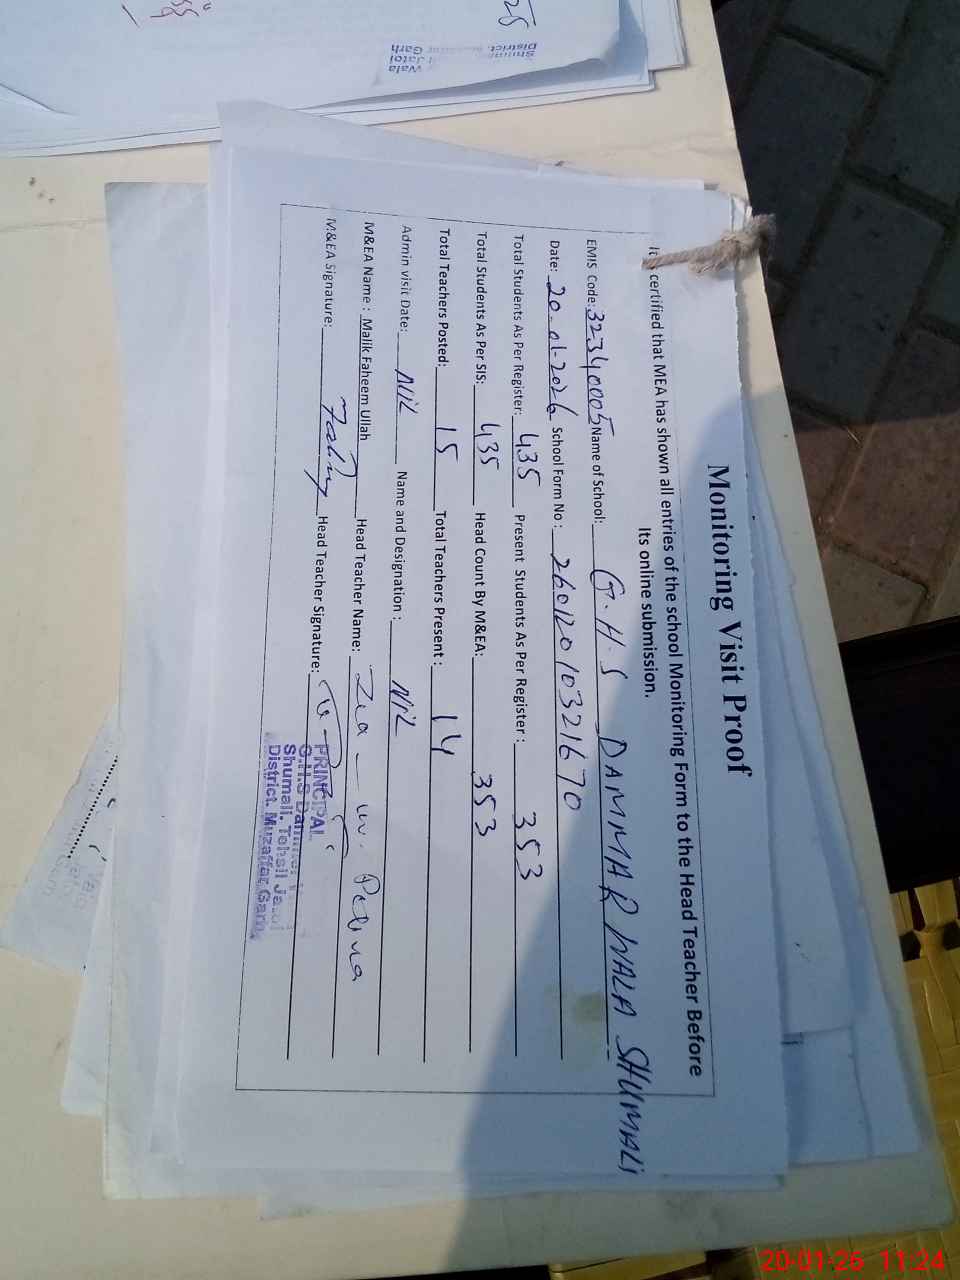 Monitoring Visit Proof
It certified that MEA has shown all entries of the school Monitoring Form to the Head Teacher Before
Its online submission.
EMIS Code: 32340005 Name of School: G.H.S DAMMAR WALA SHUMALI
Date: 20-01-2026 School Form No : 26012010321670
Total Students As Per Register: 435 Present Students As Per Register : 353
Total Students As Per SIS: 435 Head Count By M&EA: 353
Total Teachers Posted: 15 Total Teachers Present : 14
Admin visit Date: Nil Name and Designation : Nil
M&EA Name : Malik Faheem Ullah Head Teacher Name: Zia
M&EA Signature: Head Teacher Signature:
PRINCIPAL
G.H.S Dammer
Shumali. Tehsil Jatoi
District. Muzaffar Garh
Wala
Jatoi
District. Garh
20-01-26 11:24